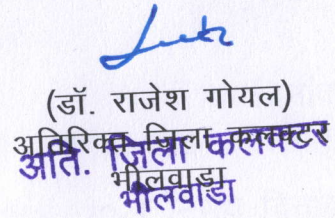 (डॉ. राजेश गोयल)
अतिरिक्त जिला कलक्टर
अति. जिला कलक्टर
भीलवाड़ा
भीलवाडा